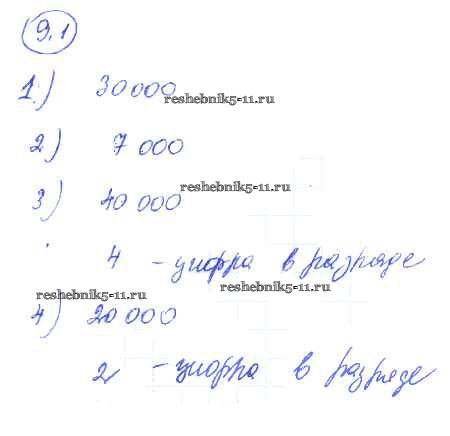 9.1
1) 30 000
reshebnik5-11.ru
2) 7 000
reshebnik5-11.ru
3) 40 000
4 - цифра в разряде
reshebnik5-11.ru reshebnik5-11.ru
4) 20 000
2 - цифра в разряде